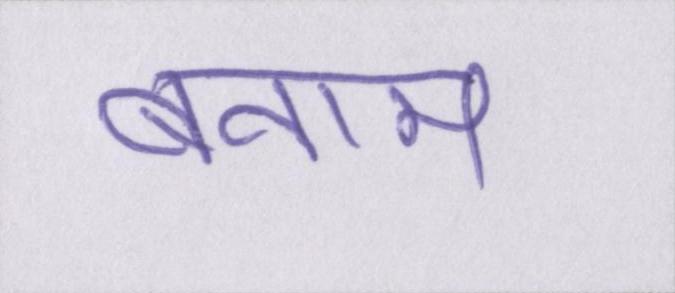 बनाम